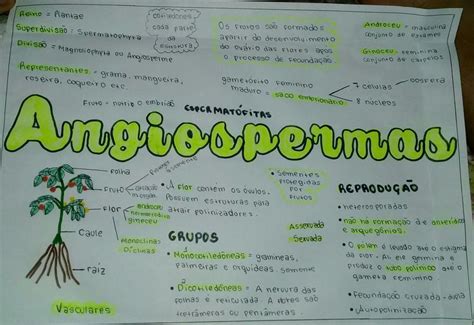 Reino = Plantae
Superdivisão: Spermatophyta
Divisão = Magnoliophyta ou Angiosperma
Representantes = grama, mangueira,
roseira, coqueiro etc.
Cotiledones
essa parte
da
estrutura
Os frutos são formados
apartir do desenvolvimento
do ovário das flores após
o processo de fecundação
Androceu = masculina
conjunto de estames
Gineceu = feminina
conjunto de carpelos
gametófito feminino
maduro = saco embrionário
7 células
oosfera
8 núcleos
Fruto = nutrir o embrião
ESPERMATÓFITAS
Angiospermas
folha
fruto
Flor
androceu
hermafrodita
gineceu
Monoclinas
Diclinas
Caule
raiz
Vasculares
A flor contem os óvulos.
Possuem estruturas para
atrair polinizadores.
• Sementes
protegidas
por
frutos
GRUPOS
• Monocotiledôneas = gramineas,
palmeiras e orquídeas. Somente
• Dicotiledôneas = A nervura das
folhas é reticulada. A flores são
tetrâmeras ou pentâmeras
REPRODUÇÃO
• heterosporadas
• não há formação de anterídios
e arquegônios.
• O pólen é levado até o estigma
da flor. Ao ele germina e
produz o tubo polínico até o
gameta feminino
• Fecundação cruzada = dupla
• Autopolinização